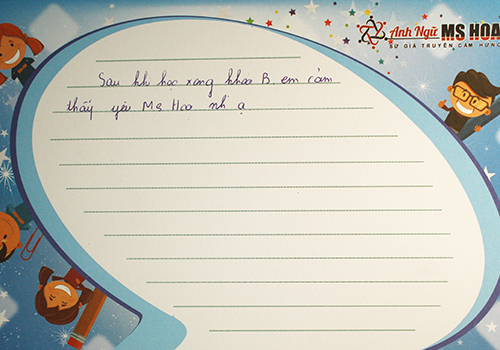 Anh Ngữ MS HOA
SỨ GIẢ TRUYỀN CẢM HỨNG
Sau khi học xong khoa B, em cảm
thấy yêu Ms Hoa nh ạ